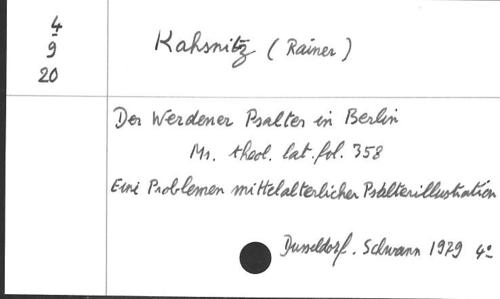 4
9
20
Kahsnitz (Rainer)
Der Werdener Psalter in Berlin
Ms. theol. lat. fol. 358
Eine Problemen mittelalterlicher Psalterillustration
Dusseldorf. Schwann 1979 4º